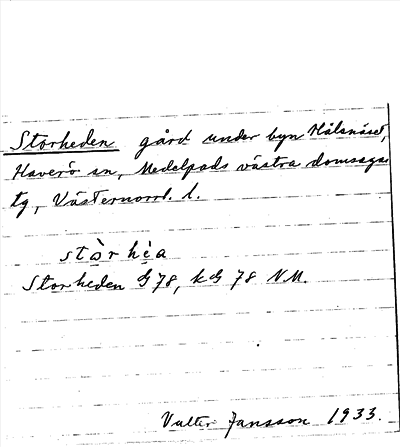 Storheden gård under byn Hålsnäset,
Haverö sn, Medelpads västra domsagas
tg, Västernorrl. l.
stòrhèa
Storheden G 78, kG 78 NM.
Valter Jansson 1933.